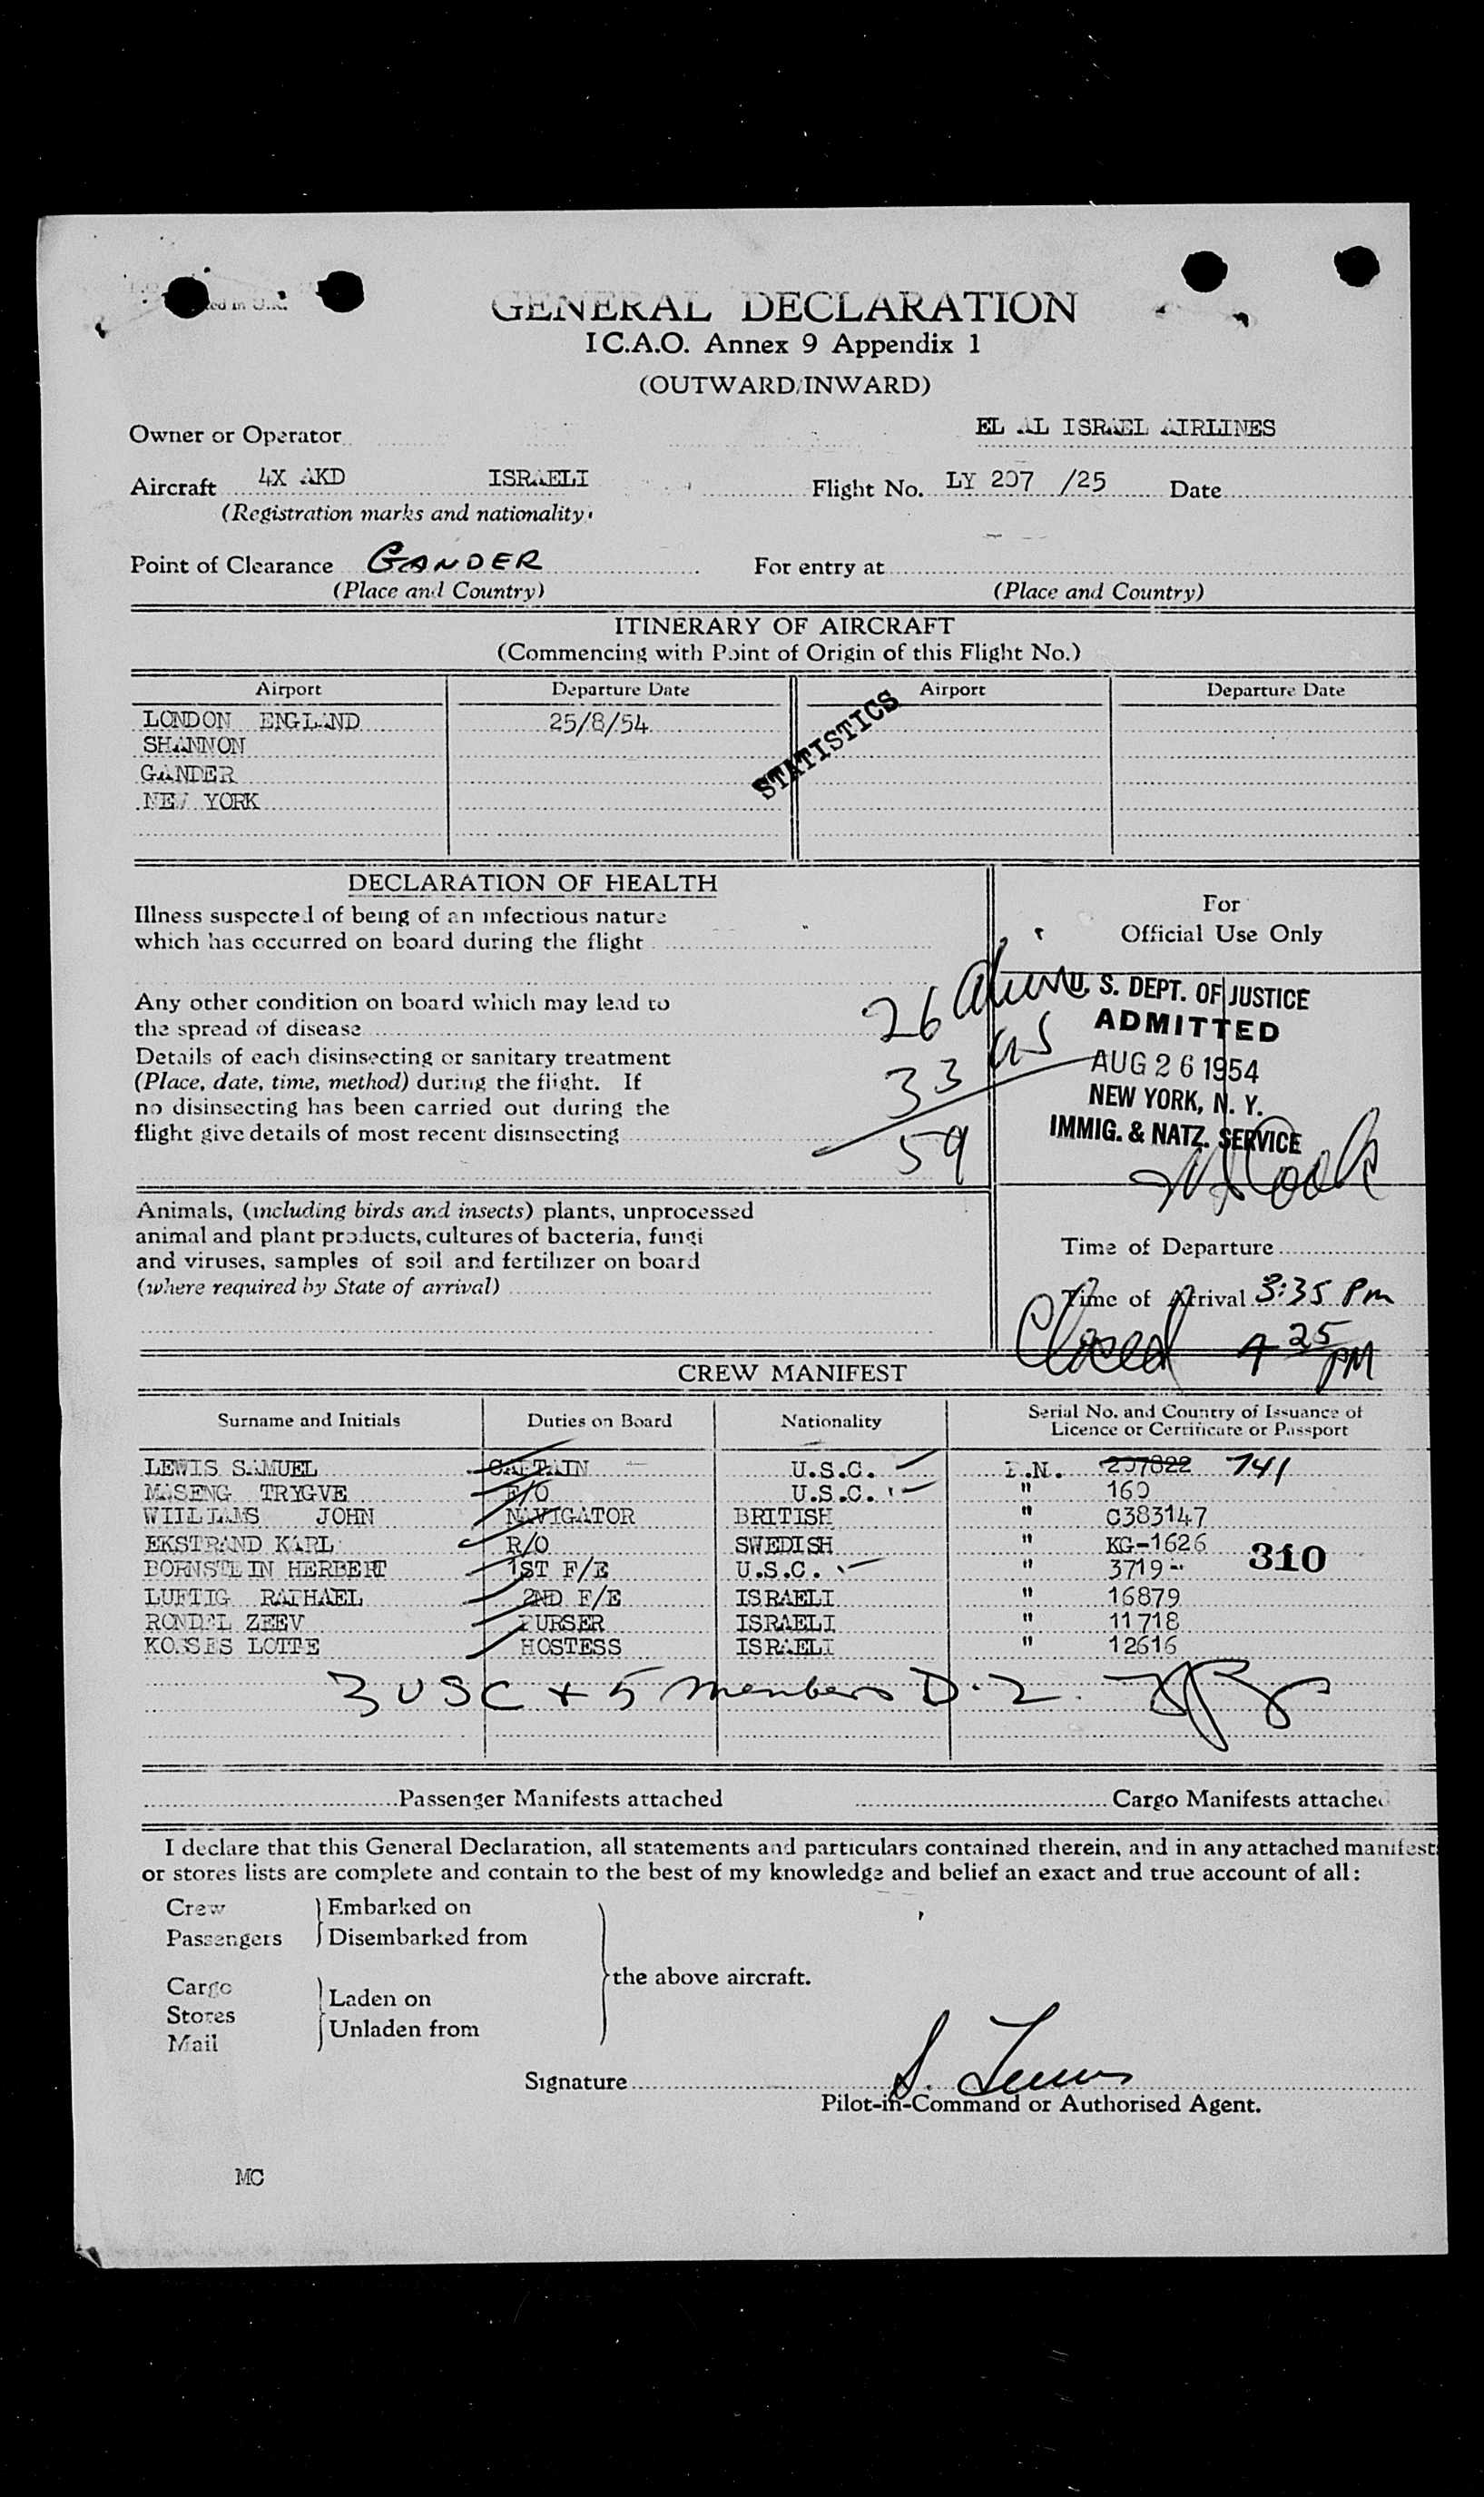 GENERAL DECLARATION
I C.A.O. Annex 9 Appendix 1
(OUTWARD/INWARD)
Owner or Operator EL AL ISRAEL AIRLINES
Aircraft 4X AKD ISRAELI Flight No. LY 207 /25 Date
(Registration marks and nationality)
Point of Clearance GANDER For entry at
(Place and Country) (Place and Country)
ITINERARY OF AIRCRAFT
(Commencing with Point of Origin of this Flight No.)
Airport Departure Date Airport Departure Date
LONDON ENGLAND 25/8/54
SHANNON
GANDER
NEW YORK
STATISTICS
DECLARATION OF HEALTH
Illness suspected of being of an infectious nature
which has occurred on board during the flight
Any other condition on board which may lead to
the spread of disease
Details of each disinsecting or sanitary treatment
(Place, date, time, method) during the flight. If
no disinsecting has been carried out during the
flight give details of most recent disinsecting
26
33
59
For
Official Use Only
U. S. DEPT. OF JUSTICE
ADMITTED
AUG 26 1954
NEW YORK, N. Y.
IMMIG. & NATZ. SERVICE
Animals, (including birds and insects) plants, unprocessed
animal and plant products, cultures of bacteria, fungi
and viruses, samples of soil and fertilizer on board
(where required by State of arrival)
Time of Departure
Time of Arrival 3:35 Pm
Closed 4 25 PM
CREW MANIFEST
Surname and Initials Duties on Board Nationality Serial No. and Country of Issuance of
Licence or Certificate or Passport
LEWIS SAMUEL CAPTAIN U.S.C. .N. 207822 741
MASENG TRYGVE F/O U.S.C. " 160
WILLIAMS JOHN NAVIGATOR BRITISH " C383147
EKSTRAND KARL R/O SWEDISH " KG-1626
BORNSTEIN HERBERT 1ST F/E U.S.C. " 3719 310
LUFTIG RAPHAEL 2ND F/E ISRAELI " 16879
RONDEL ZEEV PURSER ISRAELI " 11718
LOTTE HOSTESS ISRAELI " 12616
3 USC + 5 members D.2.
Passenger Manifests attached Cargo Manifests attached
I declare that this General Declaration, all statements and particulars contained therein, and in any attached manifest
or stores lists are complete and contain to the best of my knowledge and belief an exact and true account of all:
Crew Embarked on
Passengers Disembarked from
the above aircraft.
Cargo Laden on
Stores Unladen from
Mail
Signature S. Lewis
Pilot-in-Command or Authorised Agent.
MC